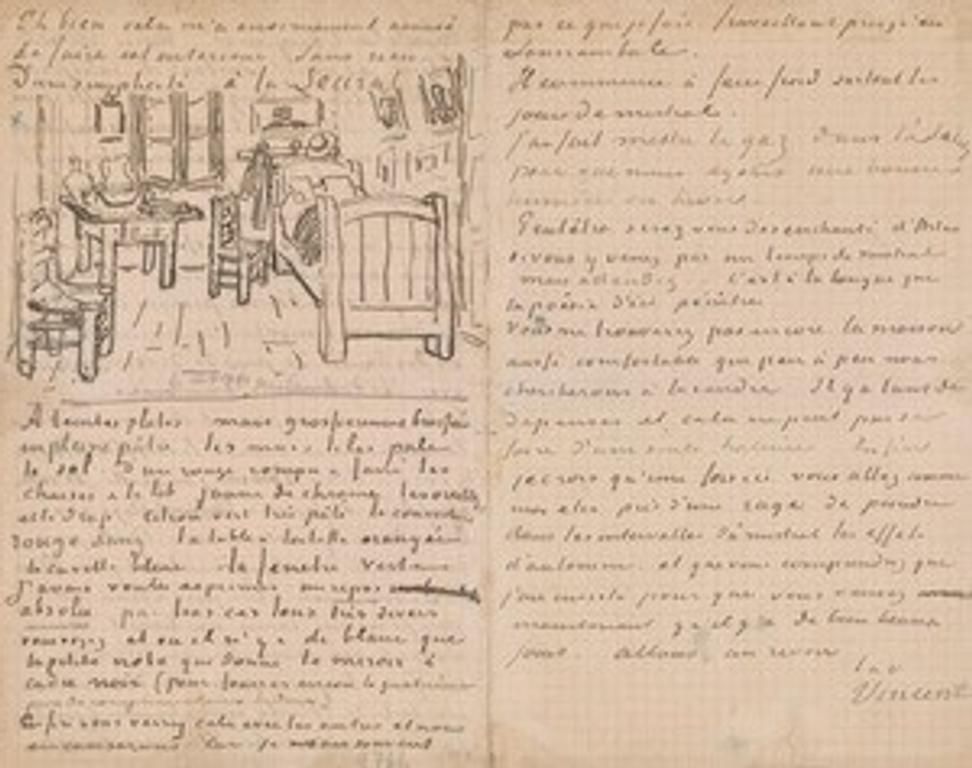 Eh bien cela m'a enormement amusé
de faire cet interieur sans rien
D'une simplicité à la Seurat
A teintes plates mais grossièrement brossées
en pleine pâte les murs lilas pale
le sol d'un rouge rompu & fané les
chaises & le lit jaune de chrome les oreillers
et le drap citron vert très pâle la couverture
rouge sang la table à toilette orangée
la cuvette bleue la fenetre verte
J'avais voulu exprimer un repos
absolu par tous ces tons très divers
vous voyez et où il n'y a de blanc que
la petite note que donne le miroir à
cadre noir (pour fourrer encore la quatrième
paire de complémentaires dedans)
Enfin vous verrez cela avec les autres et nous
en causerons Car je ne sais souvent
pas ce que je fais travaillant presqu'en
somnambule.
Il commence à faire froid surtout les
jours de mistral.
J'ai fait mettre le gaz dans l'atelier
pour que nous ayons une bonne
lumière en hiver.
Peutêtre serez vous desenchanté d'Arles
si vous y venez par un temps de mistral
mais attendez C'est à la longue que
la poésie d'ici pénètre
Vous ne trouverez pas encore la maison
aussi comfortable que peu à peu nous
chercherons à la rendre Il y a tant de
dépenses et cela ne peut pas se
faire d'une seule haleine Enfin
je crois qu'une fois ici vous allez comme
moi etre pris d'une rage de peindre
dans les intervalles du mistral les effets
d'automne et que vous comprendrez que
j'ai insisté pour que vous veniez
maintenant qu'il y a de très beaux
jours. Allons, au revoir
t. à v
Vincent